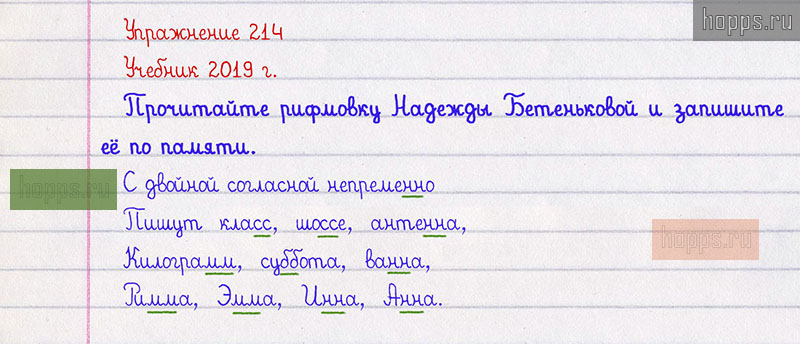 hopps.ru
Упражнение 214
Учебник 2019 г.
Прочитайте рифмовку Надежды Бетеньковой и запишите
её по памяти.
hopps.ru
С двойной согласной непременно
Пишут класс, шоссе, антенна,
hopps.ru
Килограмм, суббота, ванна,
Римма, Эмма, Инна, Анна.